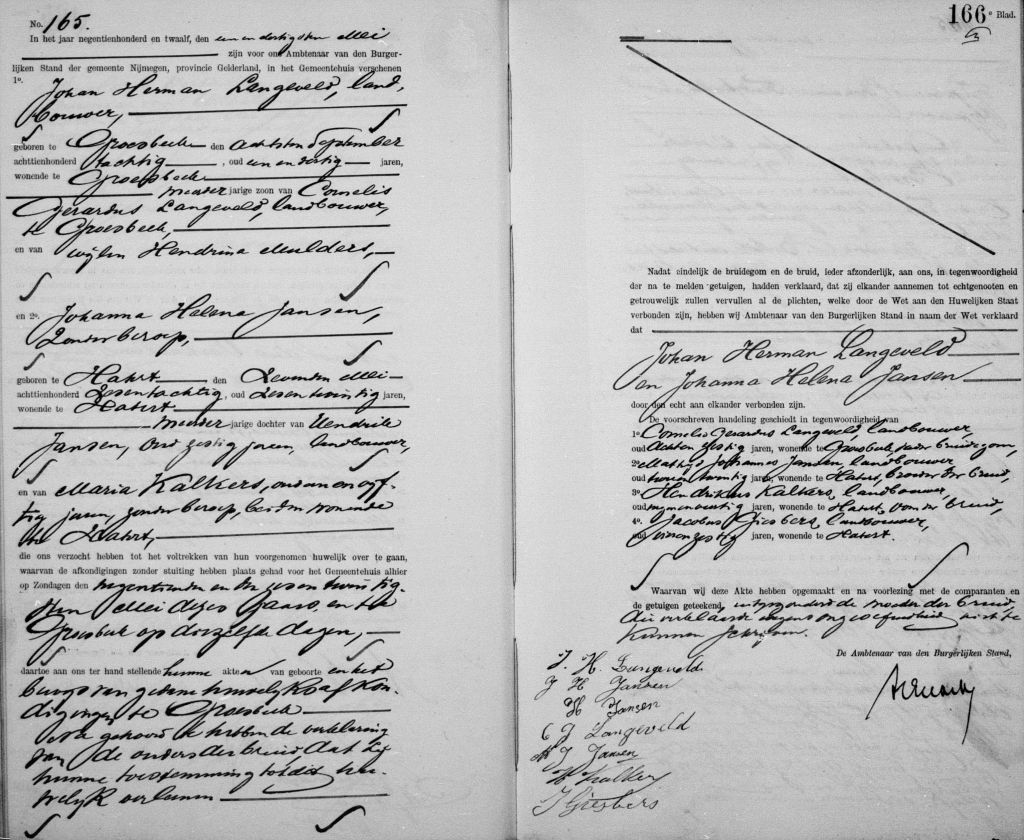 No. 165.
In het jaar negentienhonderd en twaalf, den een en dertigsten Mei
zijn voor ons Ambtenaar van den Burger-
lijken Stand der gemeente Nijmegen, provincie Gelderland, in het Gemeentehuis verschenen
1º.
Johan Herman Langeveld, land-
bouwer,
geboren te Groesbeek den achtsten September
achttienhonderd tachtig, oud een en dertig jaren,
wonende te Groesbeek
meerder jarige zoon van Cornelis
Gerardus Langeveld, landbouwer,
te Groesbeek,
en van wijlen Hendrina Mulders,
en 2º. Johanna Helena Jansen,
zonder beroep,
geboren te Hatert den zevenden Mei
achttienhonderd zesentachtig, oud zesentwintig jaren,
wonende te Hatert
meerder jarige dochter van Hendrik
Jansen, oud zestig jaren, landbouwer,
en van Maria Kalkers, oud een en vijf-
tig jaren, zonder beroep, beiden wonende
te Hatert,
die ons verzocht hebben tot het voltrekken van hun voorgenomen huwelijk over te gaan,
waarvan de afkondigingen zonder stuiting hebben plaats gehad voor het Gemeentehuis alhier
op Zondagen den negentienden en den zesentwintig-
sten Mei dezes jaars, en te
Groesbeek op diezelfde dagen,
daartoe aan ons ter hand stellende hunne akten van geboorte en het
bewijs van gedane huwelijksafkon-
digingen te Groesbeek
Na gehoord te hebben de verklaring
van de ouders der bruid dat zij
hunne toestemming tot dit hu-
welijk verleenen
166e Blad.
Nadat eindelijk de bruidegom en de bruid, ieder afzonderlijk, aan ons, in tegenwoordigheid
der na te melden getuigen, hadden verklaard, dat zij elkander aannemen tot echtgenooten en
getrouwelijk zullen vervullen al de plichten, welke door de Wet aan den Huwelijken Staat
verbonden zijn, hebben wij Ambtenaar van den Burgerlijken Stand in naam der Wet verklaard
dat
Johan Herman Langeveld
en Johanna Helena Jansen
door den echt aan elkander verbonden zijn.
De voorschreven handeling geschiedt in tegenwoordigheid van
1º Cornelis Gerardus Langeveld, landbouwer,
oud achtenzestig jaren, wonende te Groesbeek, vader bruidegom,
2º Mathijs Johannes Jansen, landbouwer
oud tweeentwintig jaren, wonende te Hatert, broeder der bruid,
3º Hendrikus Kalkers, landbouwer,
oud jaren, wonende te Hatert, oom der bruid,
4º. Jacobus Giesbers, landbouwer,
oud jaren, wonende te Hatert.
Waarvan wij deze Akte hebben opgemaakt en na voorlezing met de comparanten en
de getuigen geteekend, uitgezonderd de moeder der bruid,
die verklaarde wegens ongeoefendheid niet te
kunnen schrijven.
De Ambtenaar van den Burgerlijken Stand,
J. H. Langeveld
J H Jansen
H Jansen
C G Langeveld
M J Jansen
H Kalkers
J Giesbers